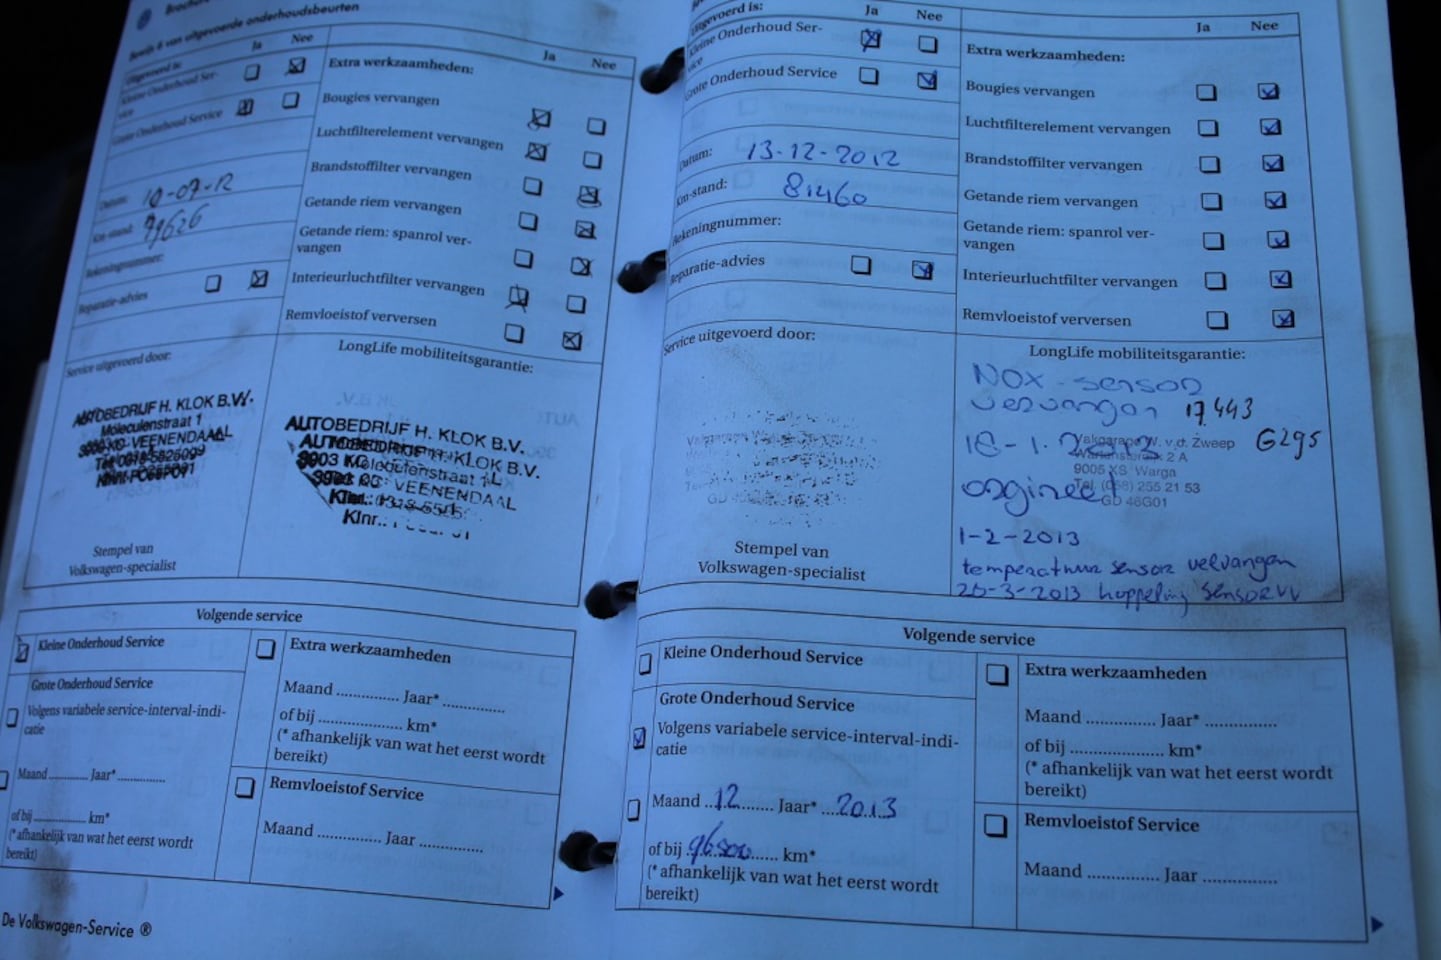 Bewijs 6 van uitgevoerde onderhoudsbeurten
Uitgevoerd is:
Ja Nee
Kleine Onderhoud Ser-
vice
Grote Onderhoud Service
Datum: 10-07-12
Km-stand:
Rekeningnummer:
Reparatie-advies
Ja Nee
Extra werkzaamheden:
Bougies vervangen
Luchtfilterelement vervangen
Brandstoffilter vervangen
Getande riem vervangen
Getande riem: spanrol ver-
vangen
Interieurluchtfilter vervangen
Remvloeistof verversen
Service uitgevoerd door:
AUTOBEDRIJF H. KLOK B.V.
Moleculenstraat 1
VEENENDAAL
Stempel van
Volkswagen-specialist
LongLife mobiliteitsgarantie:
AUTOBEDRIJF H. KLOK B.V.
AUTOBEDRIJF H. KLOK B.V.
3903 KG Moleculenstraat 1
VEENENDAAL
Klnr.:
Volgende service
Kleine Onderhoud Service
Grote Onderhoud Service
Volgens variabele service-interval-indi-
catie
Maand ............ Jaar* ...............
of bij ................ km*
(* afhankelijk van wat het eerst wordt
bereikt)
Extra werkzaamheden
Maand .............. Jaar* ..............
of bij ................... km*
(* afhankelijk van wat het eerst wordt
bereikt)
Remvloeistof Service
Maand .............. Jaar ..............
De Volkswagen-Service ®
Uitgevoerd is:
Ja Nee
Kleine Onderhoud Ser-
vice
Grote Onderhoud Service
Datum: 13-12-2012
Km-stand: 81460
Rekeningnummer:
Reparatie-advies
Ja Nee
Extra werkzaamheden:
Bougies vervangen
Luchtfilterelement vervangen
Brandstoffilter vervangen
Getande riem vervangen
Getande riem: spanrol ver-
vangen
Interieurluchtfilter vervangen
Remvloeistof verversen
Service uitgevoerd door:
Stempel van
Volkswagen-specialist
LongLife mobiliteitsgarantie:
NOX-sensor
vervangen 17443
18-1-2013 G295
Vakgarage W. v.d. Zweep
2 A
9005 XS Warga
Tel. (058) 255 21 53
GD 46G01
orgineel
1-2-2013
temperatuur sensor vervangen
25-3-2013 koppeling sensor vv
Volgende service
Kleine Onderhoud Service
Grote Onderhoud Service
Volgens variabele service-interval-indi-
catie
Maand ..12........ Jaar* ...2013
of bij 96500 ...... km*
(* afhankelijk van wat het eerst wordt
bereikt)
Extra werkzaamheden
Maand .............. Jaar* ...............
of bij ................... km*
(* afhankelijk van wat het eerst wordt
bereikt)
Remvloeistof Service
Maand .............. Jaar ...............